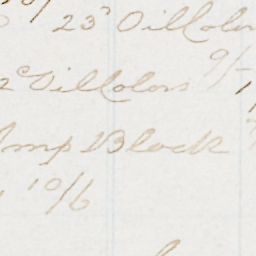 23 Oil Colors
9/-
2 Oil Colors
Lamp Black
10/6